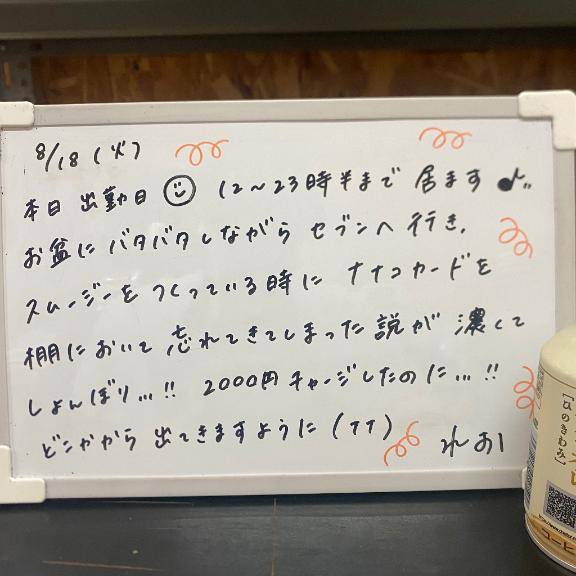 8/18(火)
本日 出勤日 12〜23時半まで 居ます♪
お盆に バタバタしながら セブンへ 行き、
スムージーを つくっている時に ナナコカードを
棚に おいて 忘れてきてしまった説が 濃くて
しょんぼり…!! 2000円チャージしたのに…!!
どこかから 出てきますように(TT)
れお
コーヒ